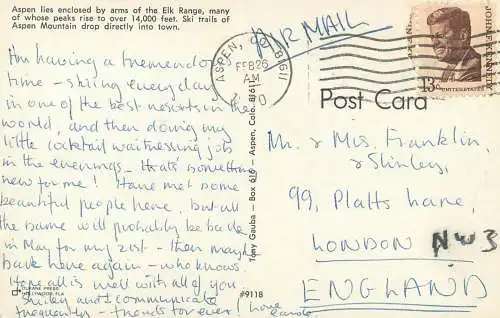 Aspen lies enclosed by arms of the Elk Range, many
of whose peaks rise to over 14,000 feet. Ski trails of
Aspen Mountain drop directly into town.
I'm having a tremendous
time - skiing every day
in one of the best resorts in the
world, and then doing my
little cocktail waitressing job
in the evenings - that's something
new for me! Have met some
beautiful people here, but all
the same will probably be back
in May for my 21st - then maybe
back here again - who knows.
Hope all is well with all of you
Shirley and I communicate
frequently - friends for ever!
Love
Carole
DUKANE PRESS
HOLLYWOOD, FLA
#9118
Tony Gauba - Box 616 - Aspen, Colo. 81611
AIR MAIL
ASPEN, 81611
FEB 26
AM
JOHN F. KENNEDY
13c
UNITED STATES
Post Card
Mr & Mrs. Franklin,
& Shirley,
99, Platts Lane,
LONDON NW3
ENGLAND